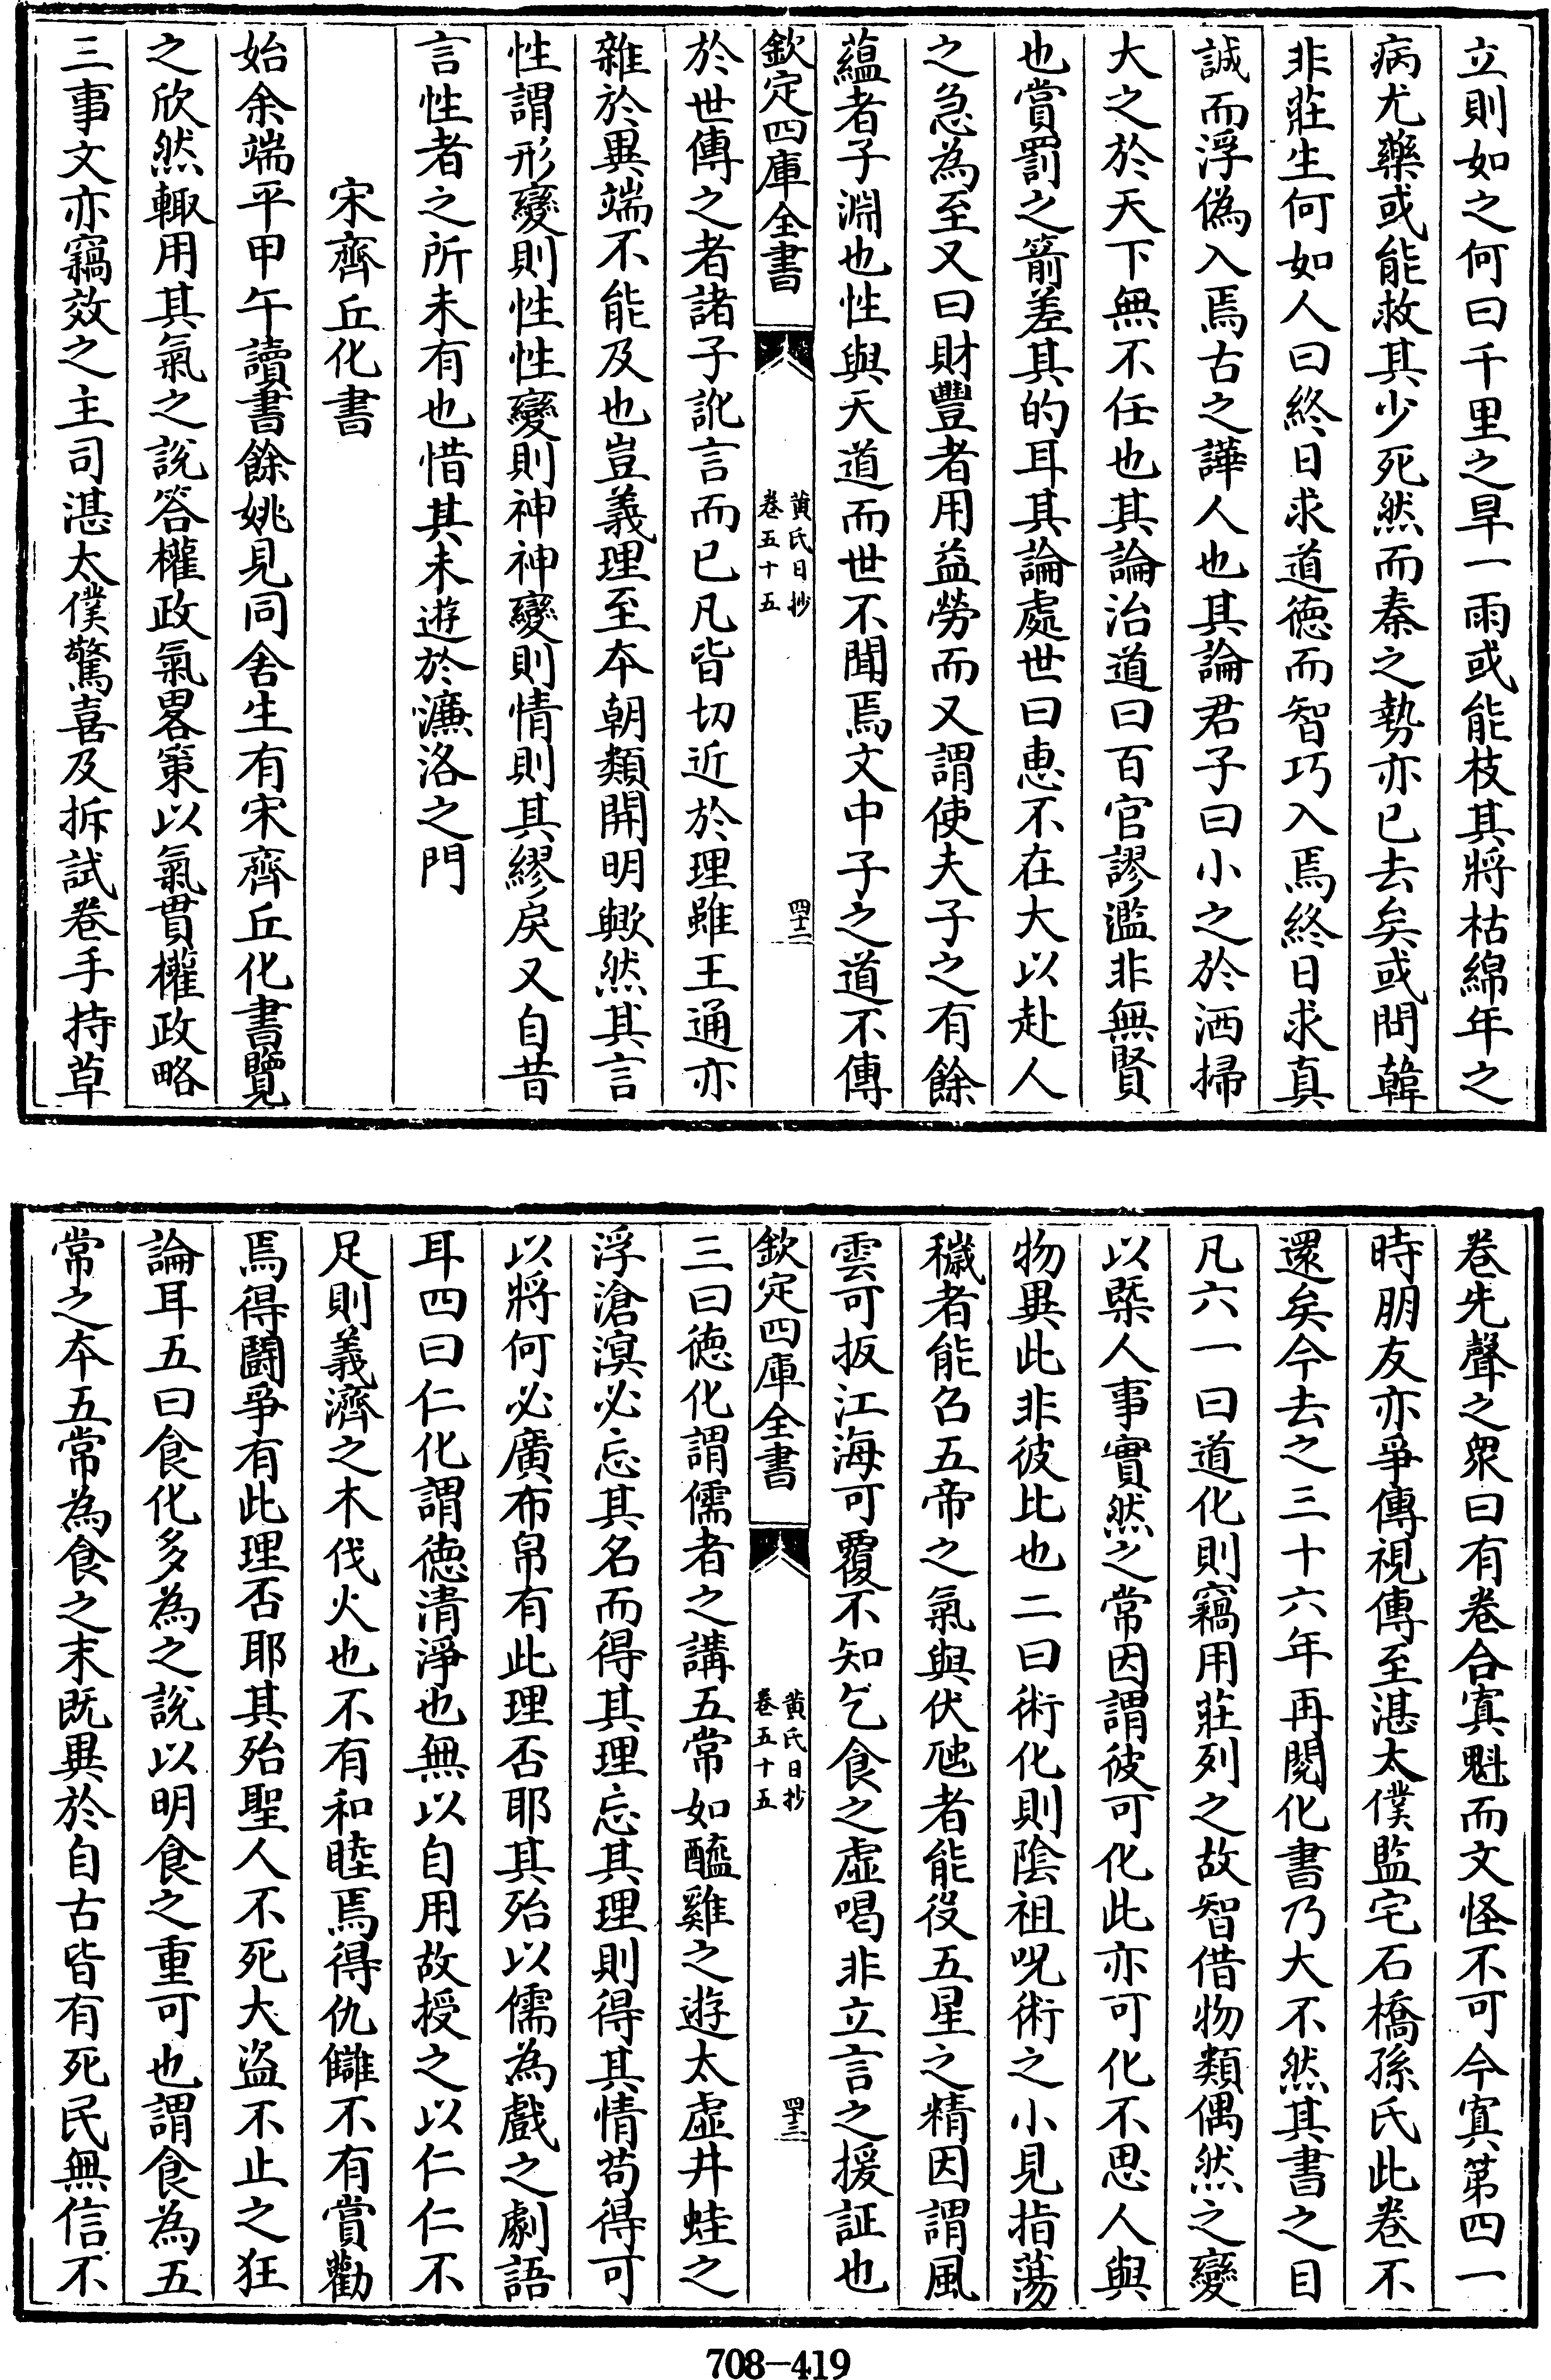 立則如之何曰千里之旱一雨或能枝其將枯綿年之
病尤藥或能救其少死然而秦之勢亦已去矣或問韓
非莊生何如人曰終日求道徳而智巧入焉終日求真
誠而浮偽入焉古之譁人也其論君子曰小之於洒掃
大之於天下無不任也其論治道曰百官謬濫非無賢
也賞罰之箭差其的耳其論處世曰惠不在大以赴人
之急為至又曰財豐者用益勞而又謂使夫子之有餘
藴者子淵也性與天道而世不聞焉文中子之道不傳
欽定四庫全書
黄氏日抄
卷五十五
四十二
於世傳之者諸子訛言而已凡皆切近於理雖王通亦
雜於異端不能及也豈義理至本朝類開明歟然其言
性謂形變則性性變則神神變則情則其繆戾又自昔
言性者之所未有也惜其未遊於濂洛之門
宋齊丘化書
始余端平甲午讀書餘姚見同舍生有宋齊丘化書覽
之欣然輙用其氣之說答權政氣畧策以氣貫權政略
三事文亦竊效之主司湛太僕驚喜及拆試卷手持草
卷先聲之衆曰有卷合寘魁而文怪不可今寘第四一
時朋友亦爭傳視傳至湛太僕監宅石橋孫氏此卷不
還矣今去之三十六年再閱化書乃大不然其書之目
凡六一曰道化則竊用莊列之故智借物類偶然之變
以槩人事實然之常因謂彼可化此亦可化不思人與
物異此非彼比也二曰術化則隂祖呪術之小見指蕩
穢者能召五帝之氣與伏虺者能役五星之精因謂風
雲可扳江海可覆不知乞食之虛喝非立言之援証也
欽定四庫全書
黄氏日抄
卷五十五
四十三
三曰徳化謂儒者之講五常如醯雞之遊太虛井蛙之
浮滄溟必忘其名而得其理忘其理則得其情茍得可
以將何必廣布帛有此理否耶其殆以儒為戲之劇語
耳四曰仁化謂徳清淨也無以自用故授之以仁仁不
足則義濟之木伐火也不有和睦焉得仇讎不有賞勸
焉得鬭爭有此理否耶其殆聖人不死大盗不止之狂
論耳五曰食化多為之說以明食之重可也謂食為五
常之本五常為食之末既異於自古皆有死民無信不
708—419